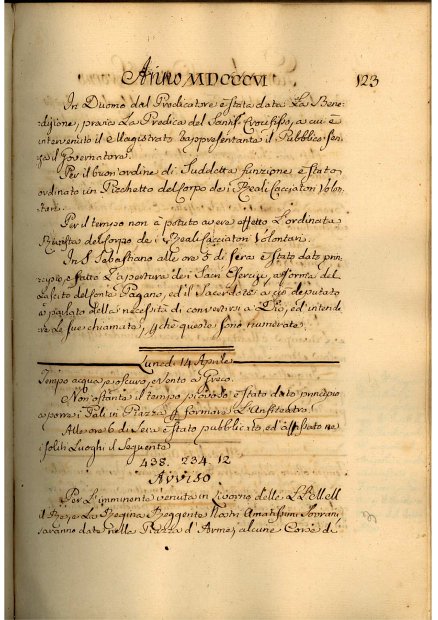 Anno MDCCCVI 123
In Duomo dal Predicatore è stata data La Bene=
dizione, previa La Predica del Santiss. Crocifisso, a cui è
intervenuto il Magistrato rappresentante il Pubblico sen=
za il Governatore.
Per il buon ordine di Suddetta funzione è stato
ordinato un Picchetto del Corpo de i Reali Cacciatori Volon=
tari.
Per il tempo non è potuto avere effetto L'ordinata
Rivista del Corpo de i Reali Cacciatori Volontari.
In S. Sebastiano alle ore 5 di sera è stato dato prin=
cipio, e fatto L'apertura de i Sani Esercizj, a forma del
Lascito del Conte Pagano, ed il Sacerdote a ciò deputato
à parlato della necessità di convertirsi a Dio, ed intende
re Le sue chiamate, che queste sono numerate.
Lunedì 14 Aprile
Tempo acqua, e oscuro, e Vento a Greco.
Non ostante il tempo piovoso è stato dato principio
a porre i Pali in Piazza p. formare L'Anfiteatro.
Alle ore 6 di Sera è stato pubblicato, ed affissato ne
i soliti Luoghi il Seguente
438. 234. 12
Avviso
Per L'imminente venuta in Livorno delle LL.
il Re, e La Regina Reggente Nostri Amatissimi Sovrani
saranno date nella Piazza d'Arme, alcune Corse di